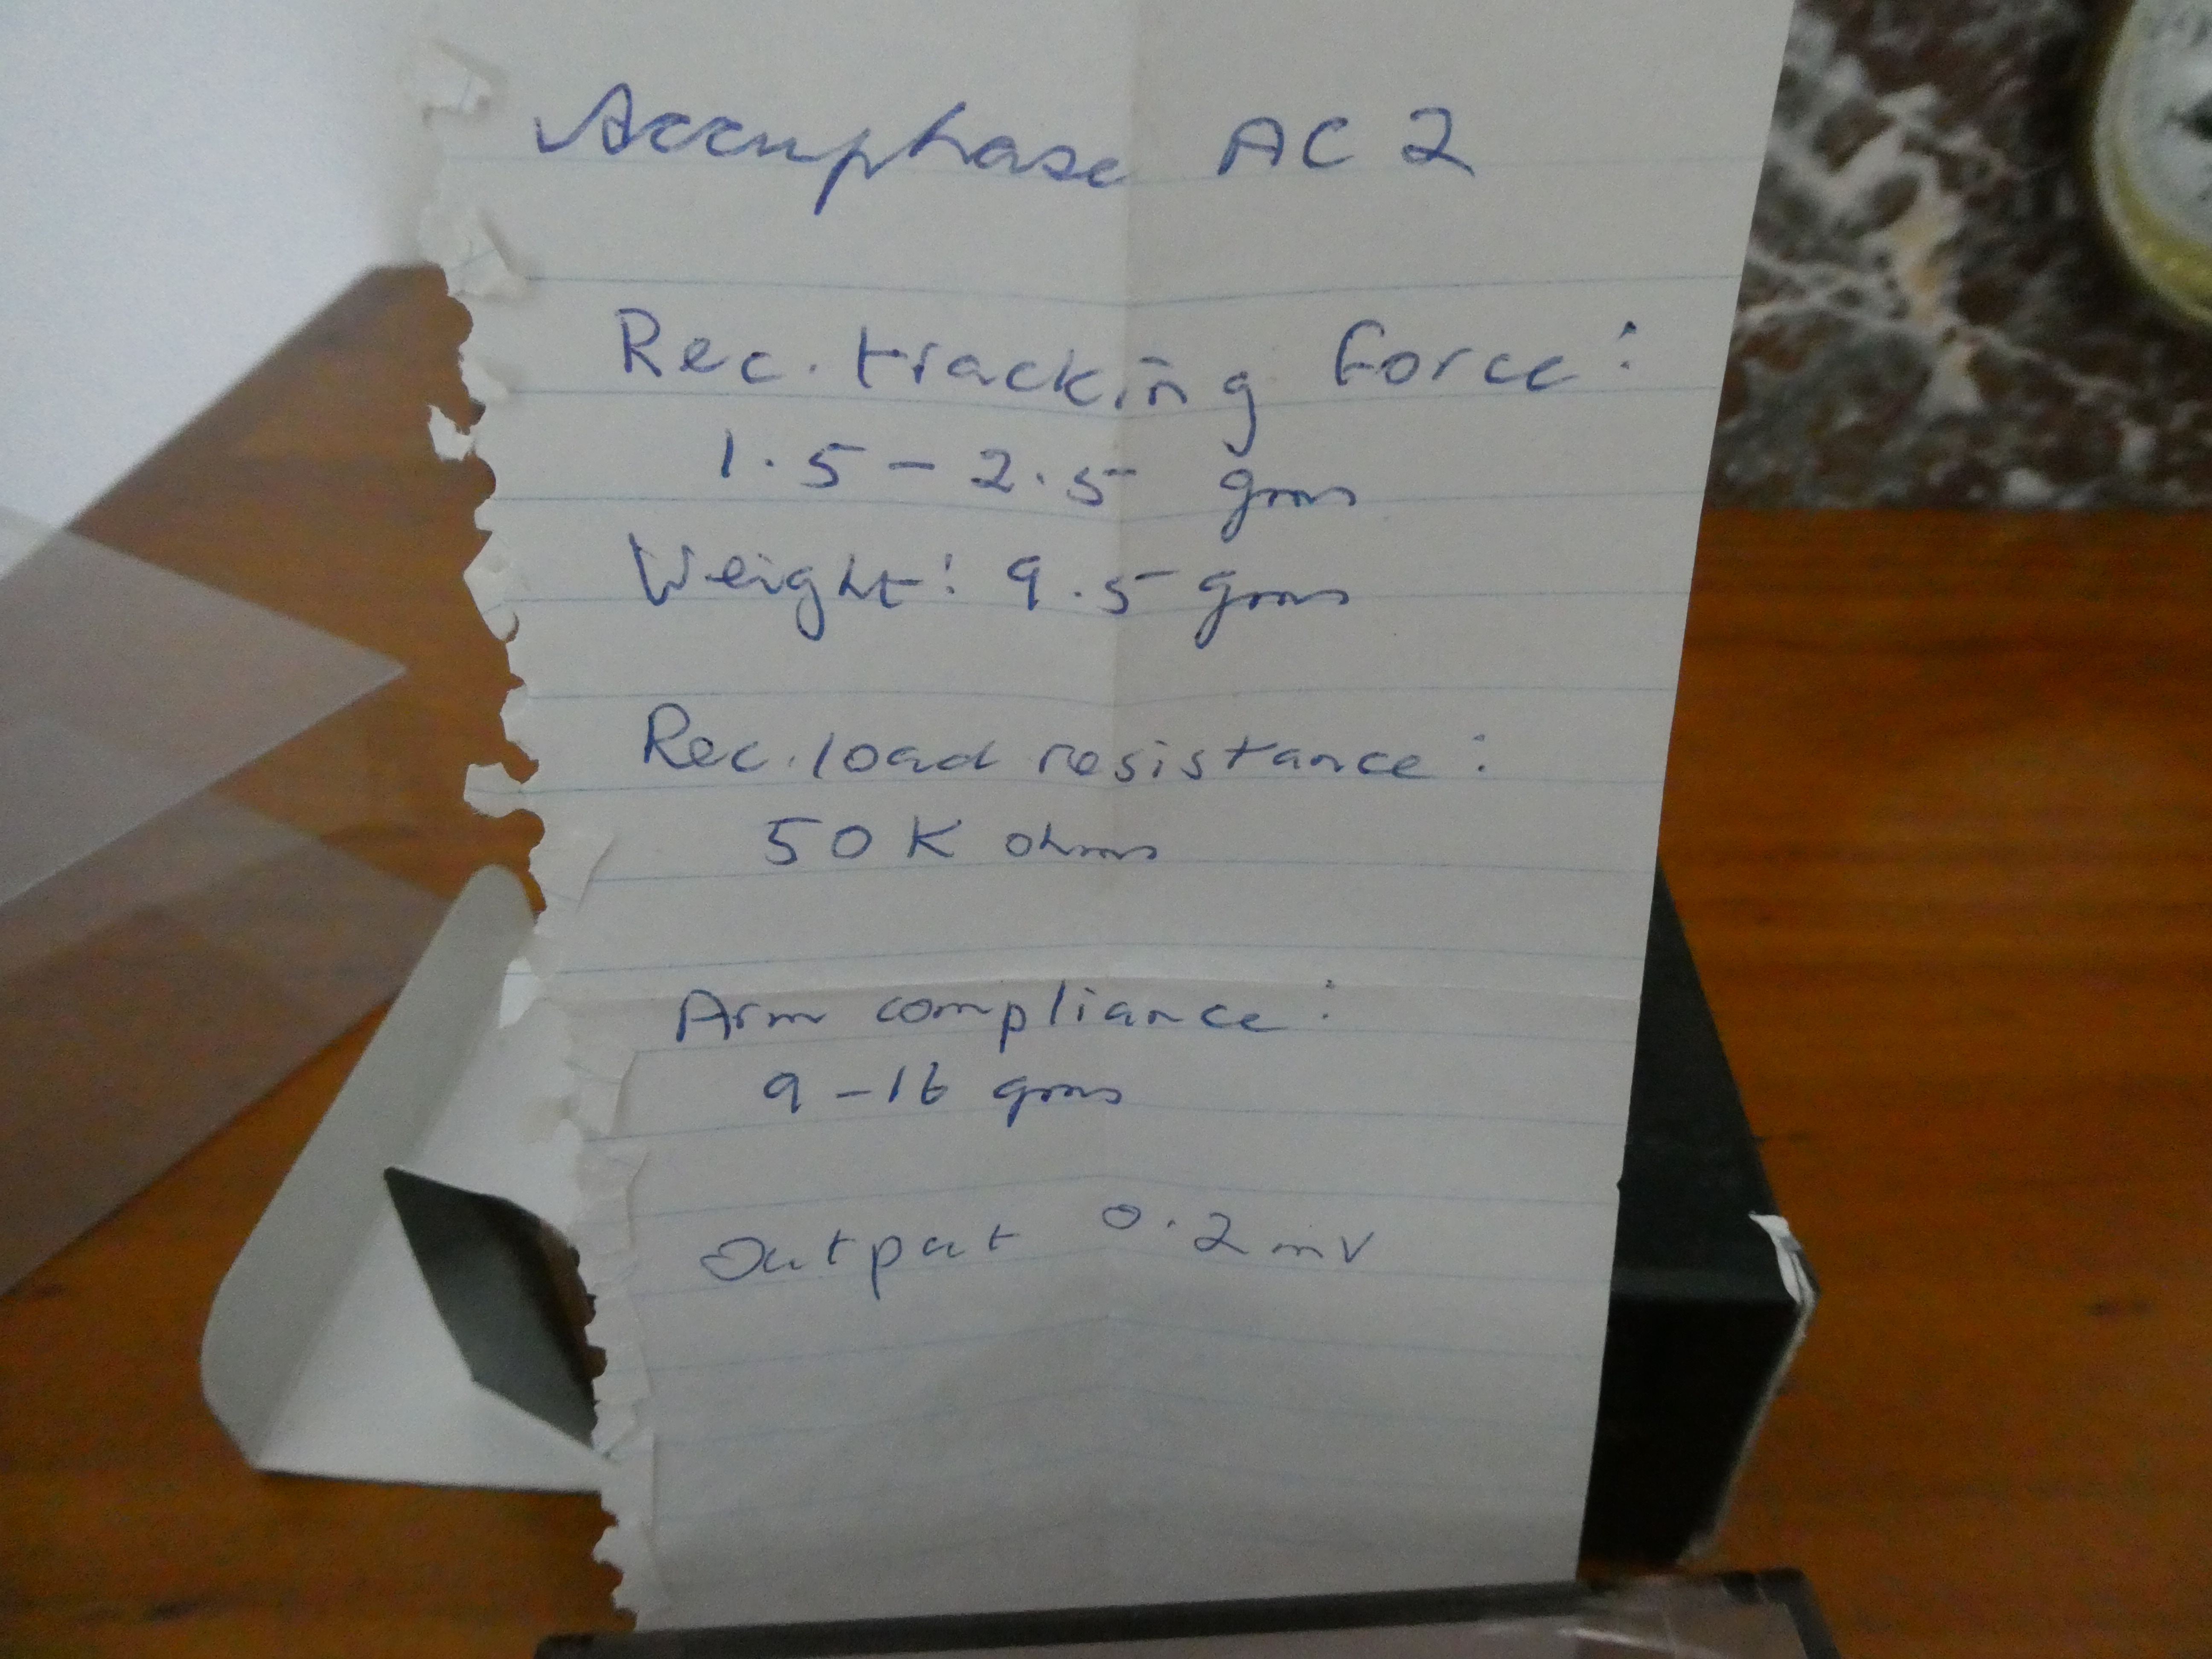 Accuphase AC 2
Rec. tracking force:
1.5 - 2.5 gms
Weight: 9.5 gms
Rec. load resistance:
50 K ohms
Arm compliance:
9 - 16 gms
Output 0.2 mV